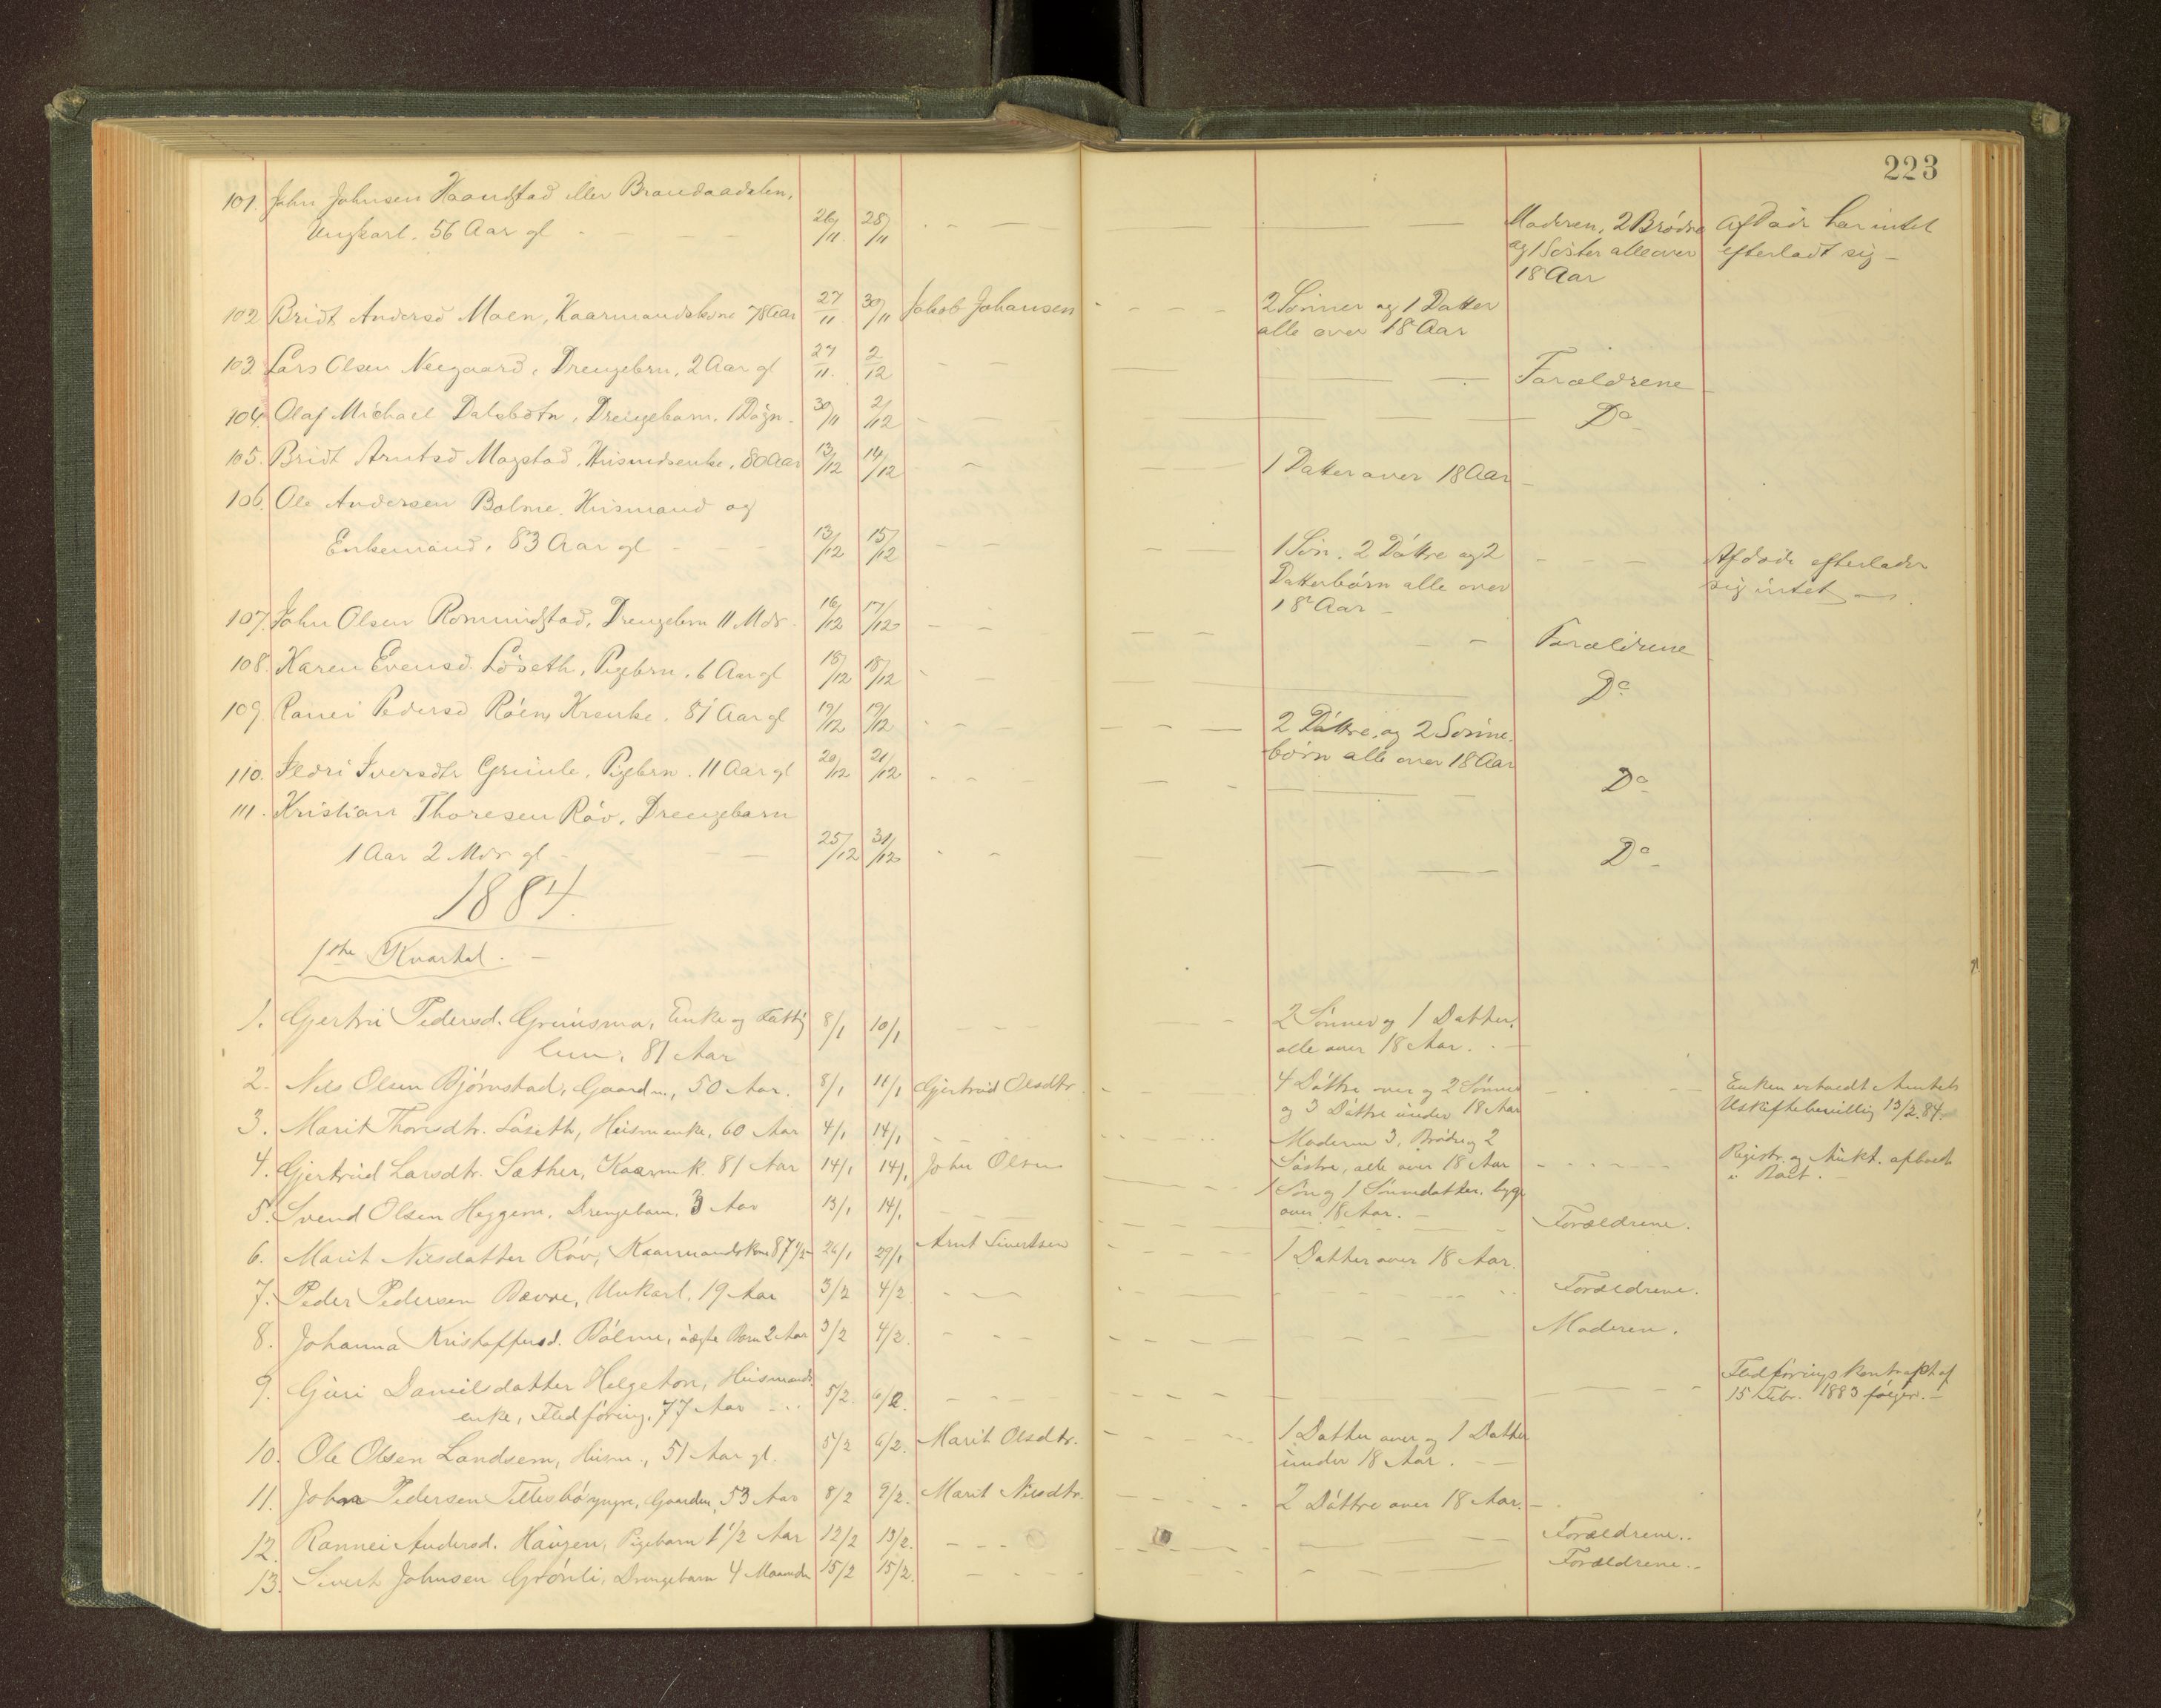 223
101. John Johnsen Haandstad eller Brandaadalen,
Ungkarl. 56 Aar gl - 26/11. 28/11 Moderen, 2 Brødre Afdøde har intet
og 1 Søster alle over efterladt sig -
18 Aar
102 Bridt Andersd Moen, Kaarmandskone 78 Aar 27/11 30/11 Jakob Johansen 2 Sønner og 1 Datter
alle over 18 Aar
103. Lars Olsen Neegaard, Drengebrn, 2 Aar gl 27/11. 2/12 Forældrene
104. Olaf Michael Dalsbotn, Drengebarn, 1 Døgn. 30/11 2/12 Do
105. Bridt Arntsd Magstad, Husmdsenke, 80 Aar 13/12 14/12 1 Datter over 18 Aar
106. Ole Andersen Bolme, Husmand og
Enkemand, 83 Aar gl 13/12 15/12 1 Søn, 2 Døttre og 2 Afdøde efterlader
Datterbørn alle over sig intet
18 Aar -
107. John Olsen Romundstad, Drengebrn 11 Mdr. 16/12 17/12 Forældrene
108. Karen Evensd. Løseth, Pigebrn, 6 Aar gl 18/12 18/12 Do
109. Rannei Pedersd Røen, Kaarenke, 81 Aar gl 19/12 19/12 2 Døttre, og 2 Sønne-
børn alle over 18 Aar
110. Ildri Iversdtr Grimle, Pigebrn. 11 Aar gl 20/12 21/12 Do
111. Kristian Thoresen Røv, Drengebarn
1 Aar 2 Mdr gl - 25/12 31/12 Do
1884.
1ste Kvartal. -
1. Gjertru Pedersd. Grimsmo, Enke og Fattig 8/1 10/1 2 Sønner og 1 Datter,
lem, 81 Aar alle over 18 Aar.
2. Nils Olsen Bjørnstad, Gaardm., 50 Aar. 8/1 11/1 Gjertrud Olsdtr. 4 Døttre over og 2 Sønner Enken erholdt Amtets
og 3 Døttre under 18 Aar Uskiftebevillig 13/2 84.
3. Marit Thoresdtr. Løseth, Husmenke, 60 Aar 4/1 14/1 Moderen 3, Brødre og 2
Søstre, alle over 18 Aar
4. Gjertrud Larsdtr. Sæther, Kaarmk. 81 Aar 14/1 14/1 John Olsen 1 Søn og 1 Sønnedatter, begge Registr. og Aukt. afholdt
over 18 Aar. -
5. Svend Olsen Heggem, Drengebarn, 3 Aar 13/1 14/1 Forældrene.
6. Marit Nilsdatter Røv, Kaarmandskone 87 1/2 - 26/1 29/1 Arnt Sivertsen 1 Datter over 18 Aar.
7. Peder Pedersen Bævre, Unkarl. 19 Aar 3/2 4/2 Forældrene.
8. Johanna Kristoffersd. Bølme, uægte Barn 2 Aar 3/2 4/2. Moderen.
9. Guri Danielsdatter Helgeton, Husmands-
enke, Fledføring, 77 Aar 5/2. 6/2. Fledførings Kontrakt af
15 Febr. 1883 følger. -
10. Ole Olsen Landsem, Husm., 51 Aar gl. 5/2 6/2. Marit Olsdtr. 1 Datter over og 1 Datter
under 18 Aar. - -
11. John Pedersen Tellesbø yngre, Gaardm, 53 Aar 8/2 9/2. Marit Nilsdtr. 2 Døttre over 18 Aar.
12. Rannei Andersd. Haugen, Pigebarn 1 1/2 Aar 12/2 13/2. Forældrene.
13. Sivert Johnsen Grønli, Drengebarn 4 Maaneder 15/2 15/2. Forældrene. -